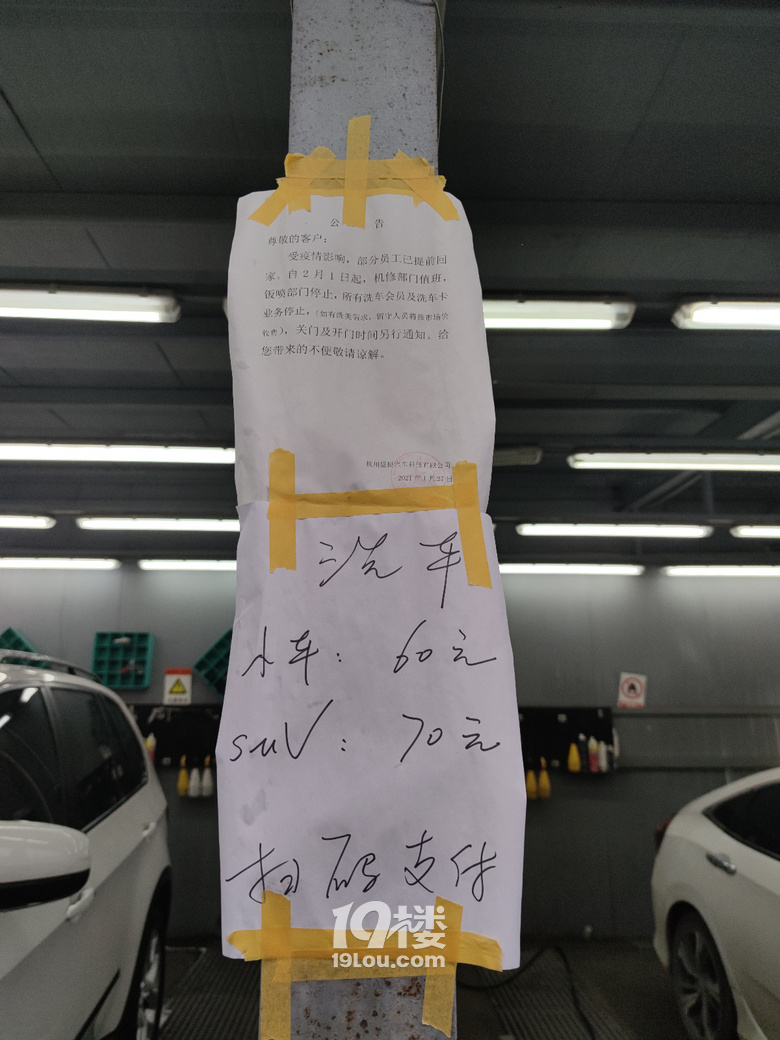 公告
尊敬的客户：
受疫情影响，部分员工已提前回
家。自2月1日起，机修部门值班，
钣喷部门停止，所有洗车会员及洗车卡
业务停止，（如有洗美需求，留守人员将按市场价
收费），关门及开门时间另行通知。给
您带来的不便敬请谅解。
杭州 汽车科技有限公司
2021年1月27日
洗车
小车：60元
SUV：70元
扫码支付
19楼
19lou.com